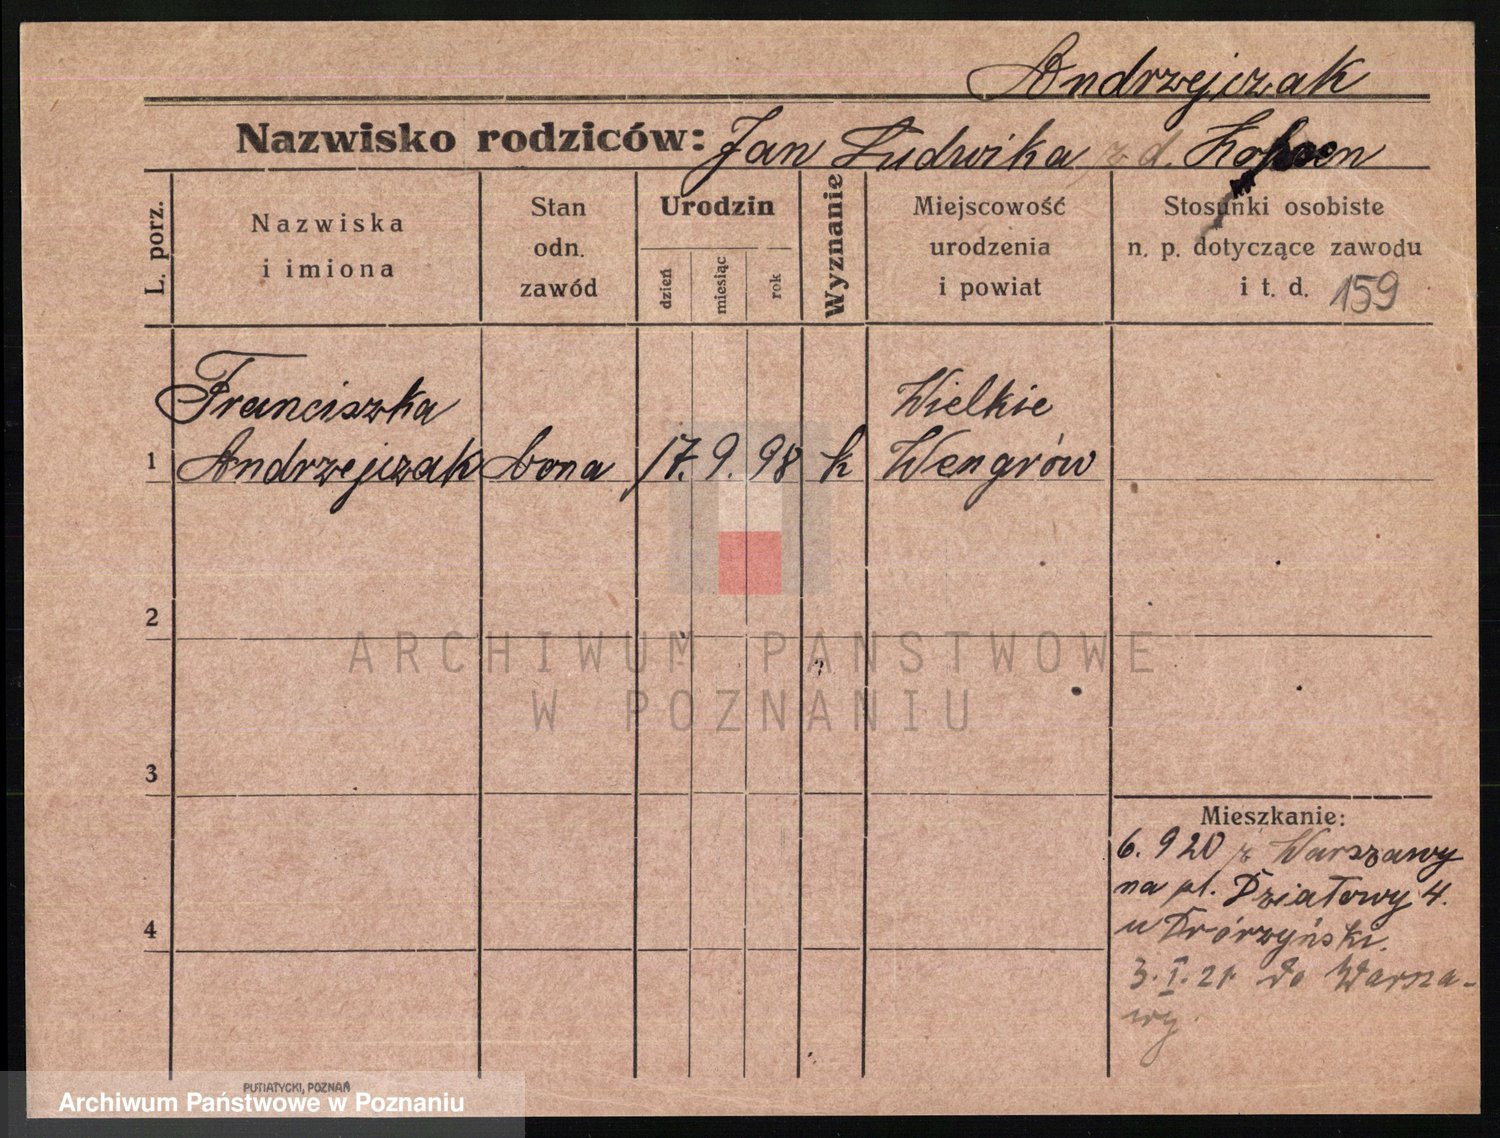 Andrzejczak
Nazwisko rodziców: Jan Ludwika z d.
L. porz.
Nazwiska
i imiona
Stan
odn.
zawód
Urodzin
dzień
miesiąc
rok
Wyznanie
Miejscowość
urodzenia
i powiat
Stosunki osobiste
n. p. dotyczące zawodu
i t. d. 159
Franciszka
Wielkie
1 Andrzejczak bona 17. 9. 98 k Wengrów
2
ARCHIWUM PAŃSTWOWE
W POZNANIU
3
Mieszkanie:
6. 9 20 z Warszawy
na pl. Działowy 4.
4
u
3. I. 21. do Warsza-
wy.
PUTIATYCKI, POZNAŃ
Archiwum Państwowe w Poznaniu